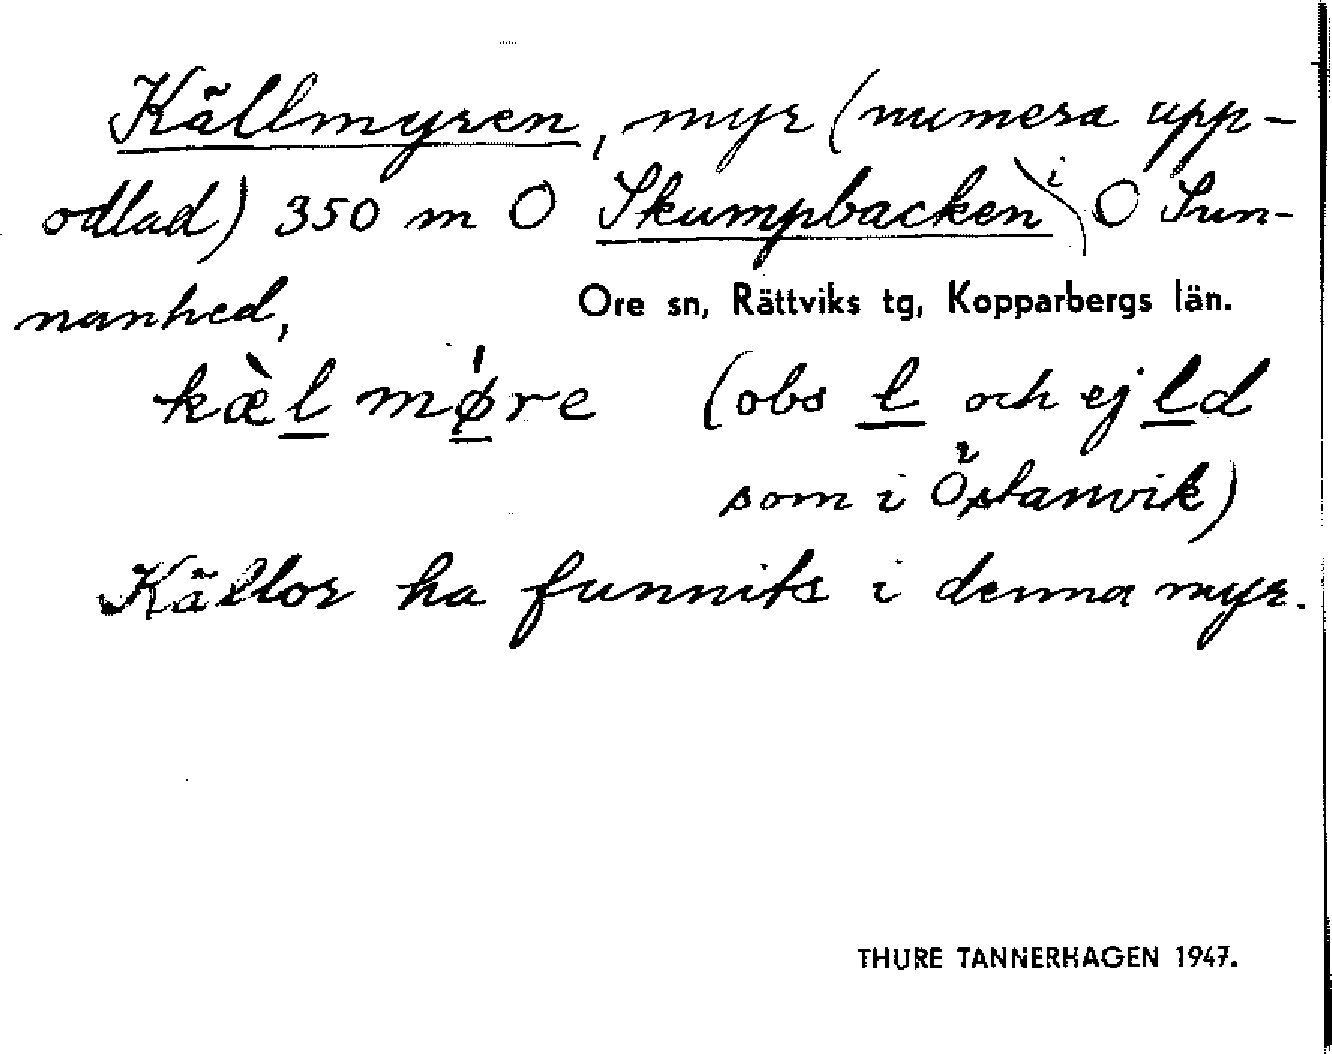 Källmyren, myr (numera upp-
odlad) 350 m O Skumpbacken i O Sun-
nanhed,
Ore sn, Rättviks tg, Kopparbergs län.
kæ̀l mǿre (obs l och ej ld
som i Östanvik)
Källor ha funnits i denna myr.
THURE TANNERHAGEN 1947.